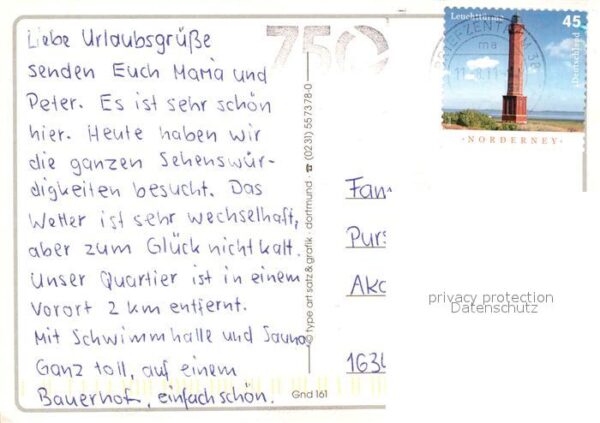 Liebe Urlaubsgrüße
senden Euch Maria und
Peter. Es ist sehr schön
hier. Heute haben wir
die ganzen Sehenswür-
digkeiten besucht. Das
Wetter ist sehr wechselhaft,
aber zum Glück nicht kalt.
Unser Quartier ist in einem
Vorort 2 km entfernt.
Mit Schwimmhalle und Sauna
Ganz toll, auf einem
Bauerhof, einfach schön.
© type art satz & grafik · dortmund · ☎ (0231) 557378-0
Gnd 161
750
BRIEFZENTRUM 38
ma
Leuchttürme
45
Deutschland
NORDERNEY
Fam
Purs
Aka
1634
privacy protection
Datenschutz